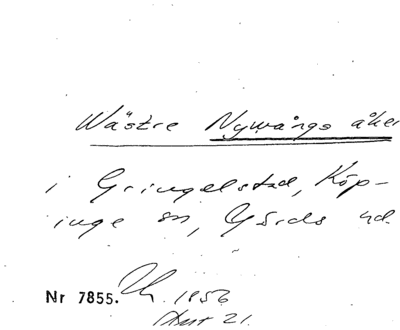 Wästre Nywångs åker
i Gringelstad, Köp-
inge sn, Gärds hd.
Nr 7855. 1956